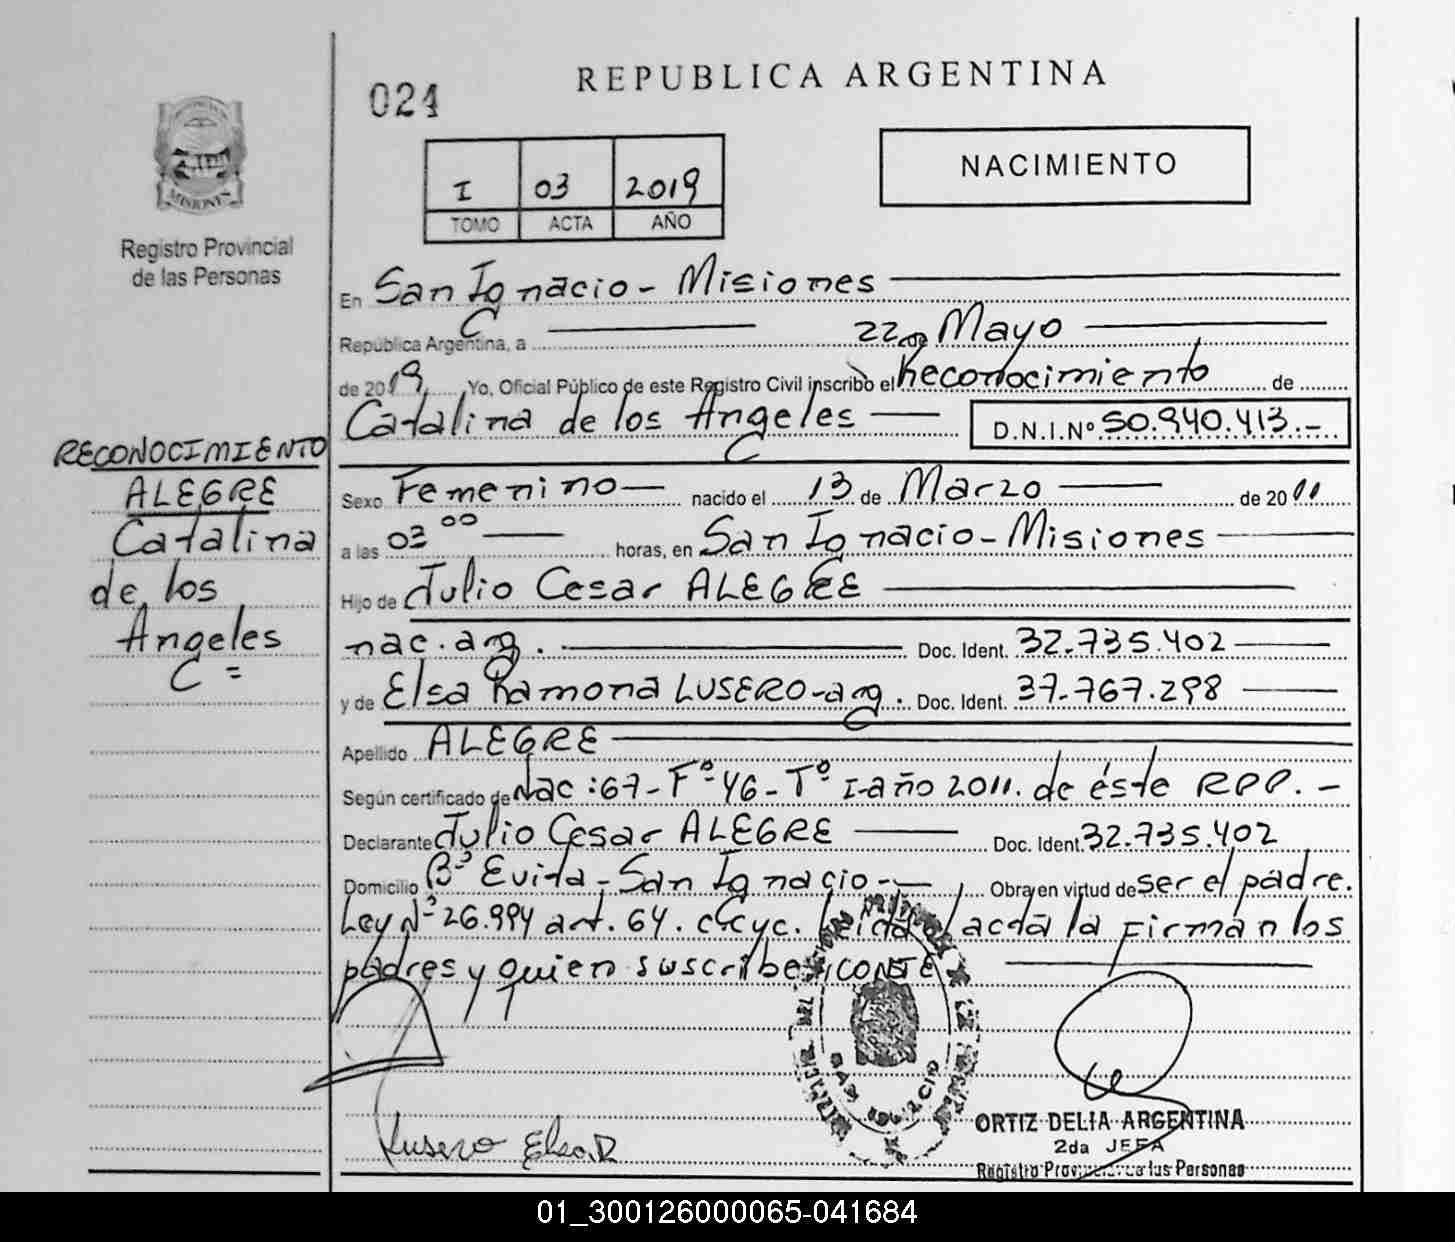 024
REPUBLICA ARGENTINA
MISIONES
Registro Provincial
de las Personas
I 03 2019
TOMO ACTA AÑO
NACIMIENTO
En San Ignacio - Misiones
República Argentina, a 22 de Mayo
de 2019 Yo, Oficial Público de este Registro Civil inscribo el Reconocimiento de
Catalina de los Angeles D.N.I.Nº 50.940.413.-
Sexo Femenino nacido el 13 de Marzo de 2011
a las 03 00 horas, en San Ignacio - Misiones
Hijo de Julio Cesar ALEGRE
nac. arg. Doc. Ident. 32.735.402
y de Elsa Ramona LUSERO - arg. Doc. Ident. 37.767.298
Apellido ALEGRE
Según certificado de Nac: 67 - Fº 46 - Tº I - año 2011. de éste RPP. -
Declarante Julio Cesar ALEGRE Doc. Ident. 32.735.402
Domicilio Bº Evita - San Ignacio - Obra en virtud de ser el padre.
Ley Nº 26.994 art. 64. CCyC. Leida el acta la firman los
padres y quien suscribe. CONSTE
RECONOCIMIENTO
ALEGRE
Catalina
de los
Angeles
C =
Lusero Elsa R
SAN IGNACIO
ORTIZ DELIA ARGENTINA
2da JEFA
Registro Prov de las Personas
01_300126000065-041684